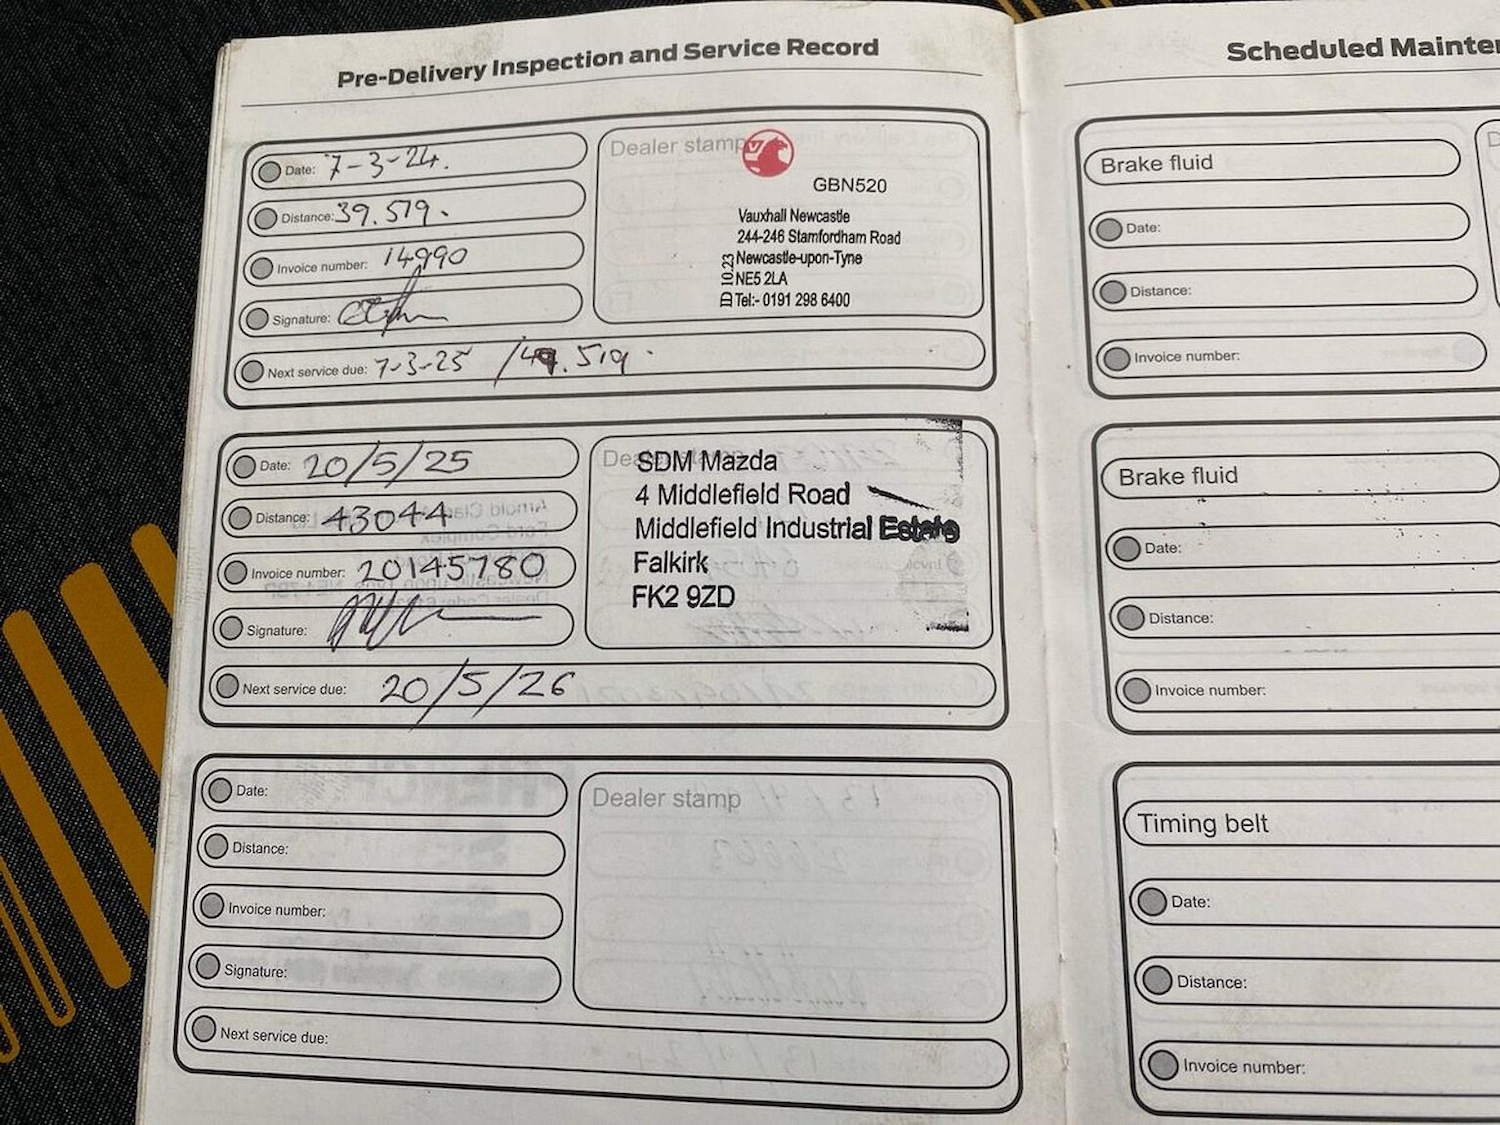 Pre-Delivery Inspection and Service Record
Date: 7-3-24.
Distance: 39.519.
Invoice number: 14990
Signature:
Next service due: 7-3-25 / 49.519.
Dealer stamp
GBN520
Vauxhall Newcastle
244-246 Stamfordham Road
Newcastle-upon-Tyne
NE5 2LA
Tel:- 0191 298 6400
ID 10.23
Date: 20/5/25
Distance: 43044
Invoice number: 20145780
Signature:
Next service due: 20/5/26
SDM Mazda
4 Middlefield Road
Middlefield Industrial Estate
Falkirk
FK2 9ZD
Date:
Distance:
Invoice number:
Signature:
Next service due:
Dealer stamp
Scheduled Mainten
Brake fluid
Date:
Distance:
Invoice number:
Brake fluid
Date:
Distance:
Invoice number:
Timing belt
Date:
Distance:
Invoice number: